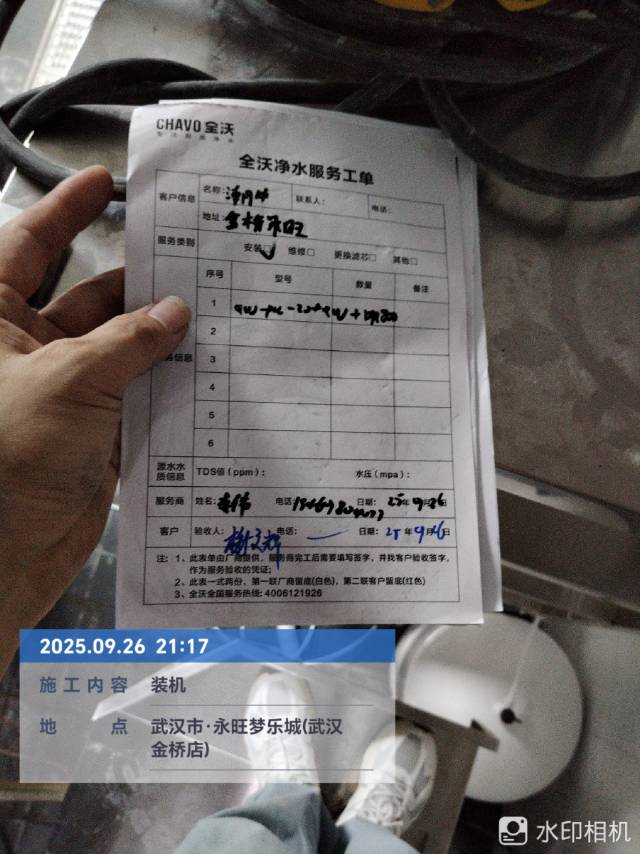 CHAVO 全沃
全沃净水服务工单
客户信息 名称: 联系人: 电话:
地址: 金桥永旺
服务类别 安装☑ 维修□ 更换滤芯□ 其他□
序号 型号 数量 备注
1
2
3
务信息
4
5
6
源水水质信息 TDS值(ppm): 水压(mpa):
服务商 姓名: 电话 日期: 25年9月26
客户 验收人: 电话: — 日期: 25年9月26日
注: 1、此表单由厂商提供,服务商完工后需要填写签字,并找客户验收签字,
作为服务验收的凭证;
2、此表一式两份,第一联厂商留底(白色),第二联客户留底(红色)
3、全沃全国服务热线: 4006121926
2025.09.26 21:17
施工内容 装机
地点 武汉市·永旺梦乐城(武汉
金桥店)
水印相机